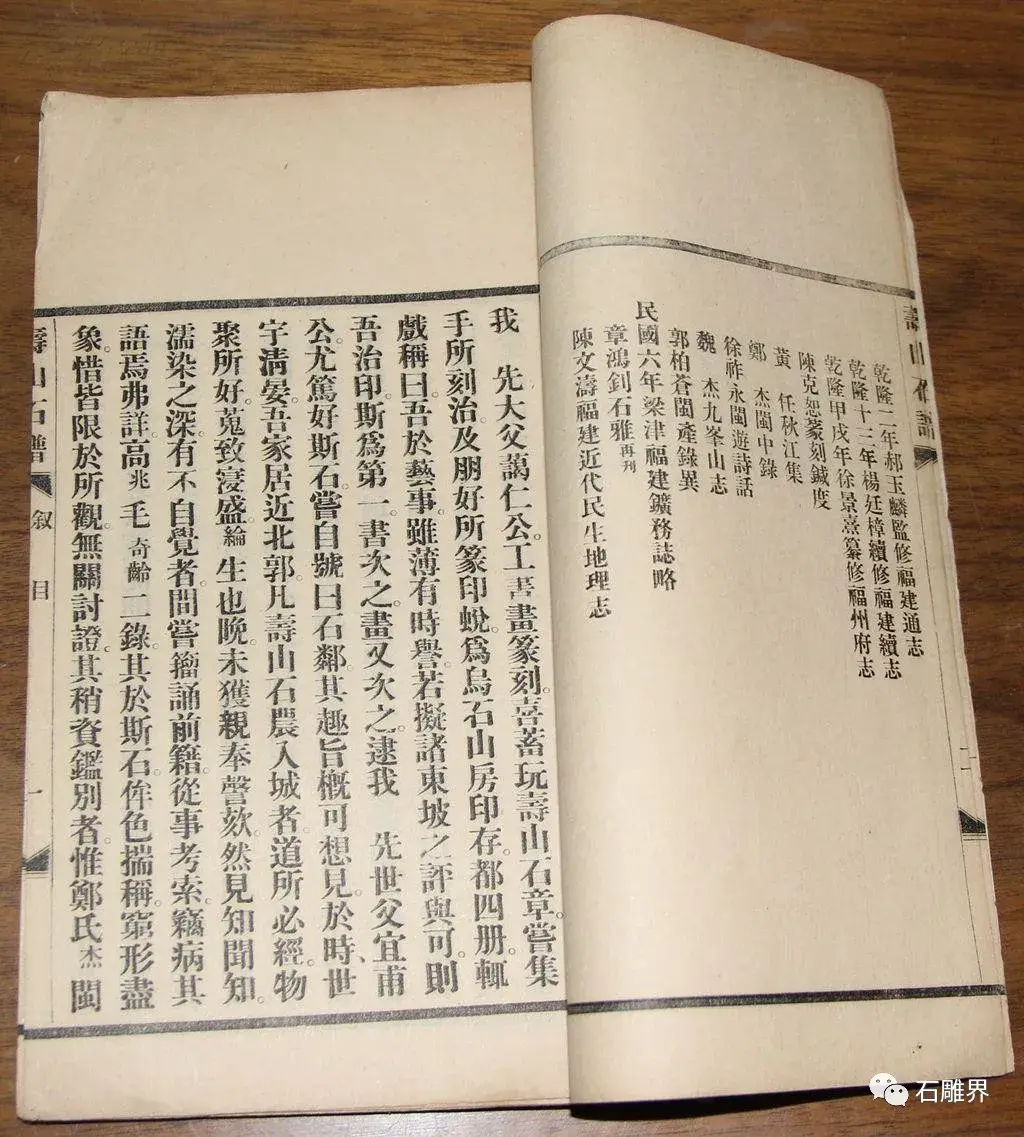 壽山石譜
乾隆二年郝玉麟監修福建通志
乾隆十三年楊廷樟續修福建續志
乾隆甲戌年徐景熹纂修福州府志
陳克恕篆刻鍼度
黃　任秋江集
鄭　杰閩中錄
徐祚永閩遊詩話
魏　杰九峯山志
郭柏蒼閩產錄異
民國六年梁津福建鑛務誌略
章鴻釗石雅再刊
陳文濤福建近代民生地理志
我　先大父藹仁公。工書畫篆刻。喜蓄玩壽山石章。嘗集
手所刻治。及朋好所篆印蛻。爲烏石山房印存。都四册。輒
戲稱曰。吾於藝事。雖薄有時譽。若擬諸東坡之評與可。則
吾治印。斯爲第一。書次之。畫又次之。逮我　先世父宜甫
公。尤篤好斯石。嘗自號曰石鄰。其趣旨概可想見。於時、世
宇淸晏。吾家居近北郭。凡壽山石農入城者。道所必經。物
聚所好。蒐致寖盛。綸生也晚。未獲親奉謦欬。然見知聞知。
濡染之深。有不自覺者。間嘗籀誦前籍。從事考索。竊病其
語焉弗詳。高兆毛奇齡二錄。其於斯石。侔色揣稱。窮形盡
象。惜皆限於所觀。無關討證。其稍資鑑別者。惟鄭氏杰閩
壽山石譜　叙　目　一
石雕界